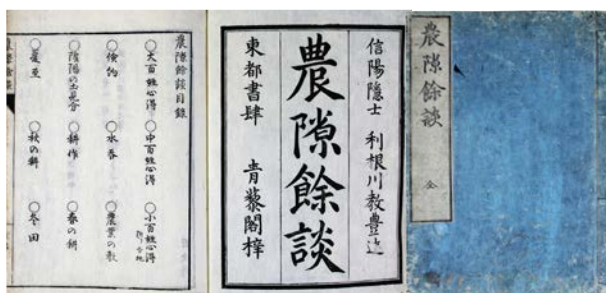 農隙餘談
全
信陽隠士 利根川教豊述
農隙餘談
東都書肆 青藜閣梓
農隙餘談目録
○大百姓心得 ○中百姓心得 ○小百姓心得
○儉約 ○水呑 ○農業の教
○陰陽の土見分 ○耕作 ○春の耕
○夏至 ○秋の耕 ○冬田